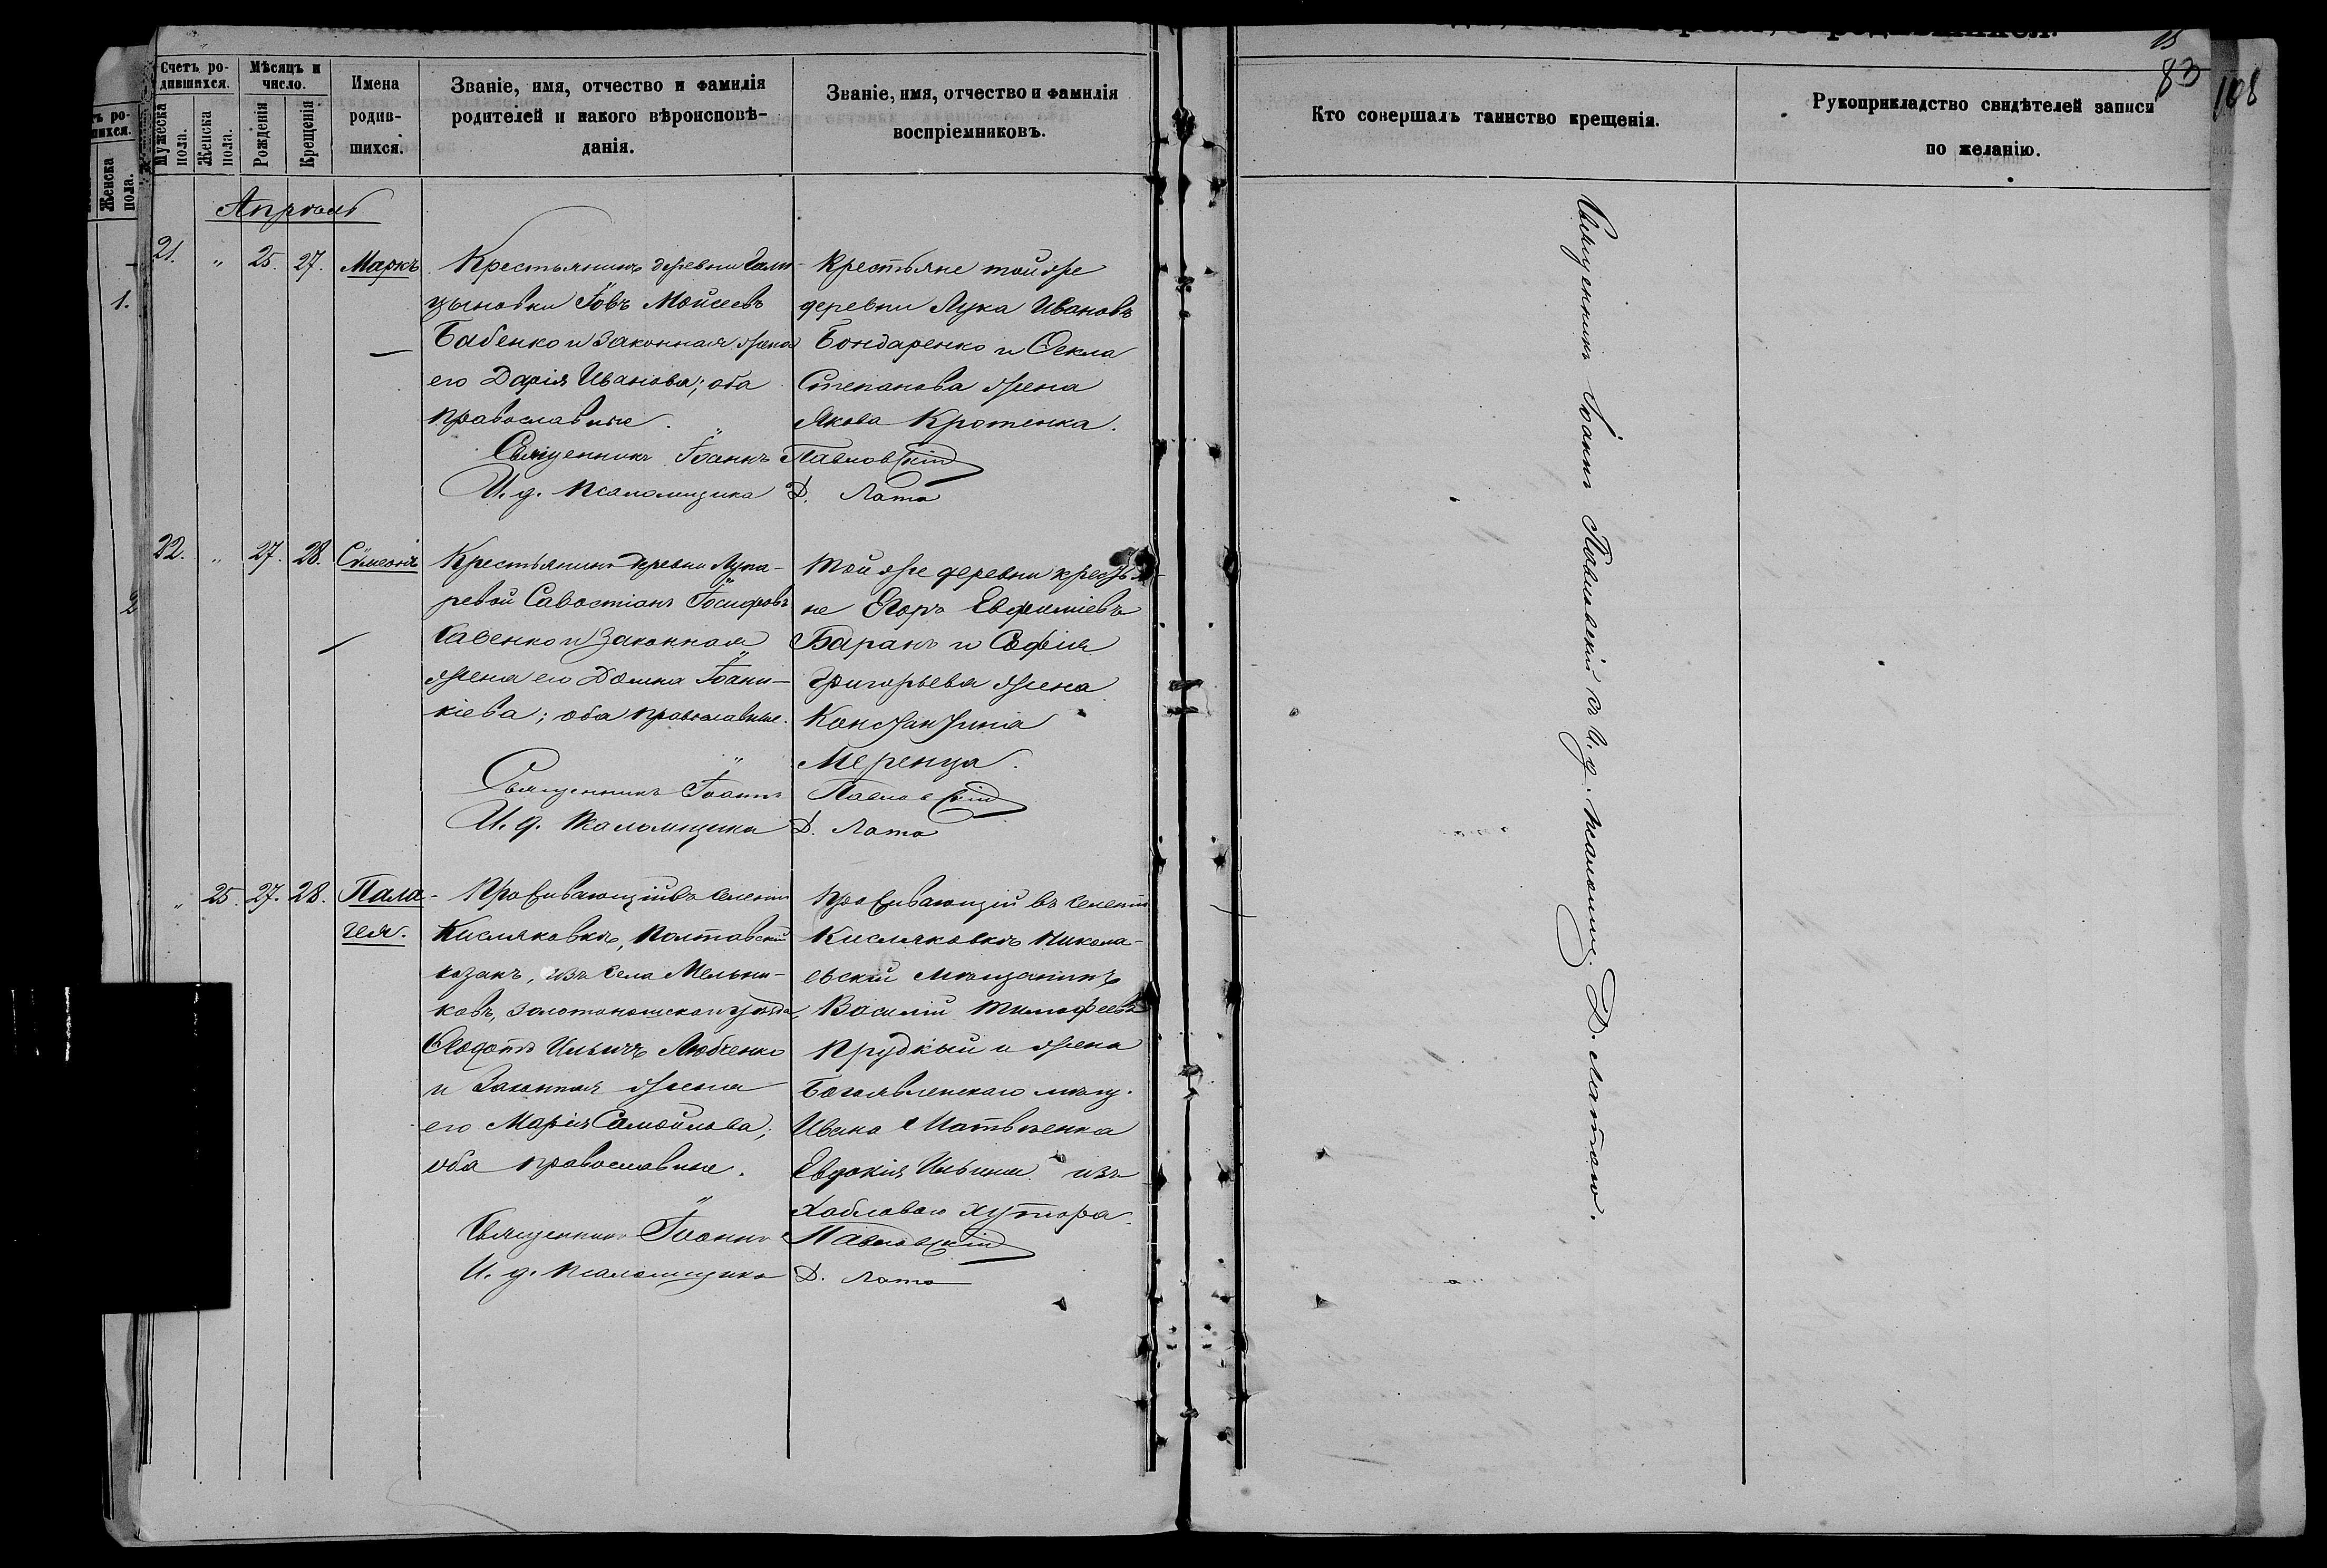 Счетъ ро-
дившихся.
Мѣсяцъ и
число.
Мужеска
пола.
Женска
пола.
Рожденія
Крещенія
Имена
родив-
шихся.
Званіе, имя, отчество и фамилія
родителей и какого вѣроисповѣ-
данія.
Званіе, имя, отчество и фамилія
воспріемниковъ.
Кто совершалъ таинство крещенія.
Рукоприкладство свидѣтелей записи
по желанію.
15
83
108
ъ ро-
шихся.
Женска
пола.
1.
2
Апрѣль
21. " 25. 27. Маркъ
Крестьянинъ деревни Гали-
цыновки Іовъ Моисеевъ
Бабенко и законная жена
его Дарія Иванова; оба
православные.
Крестьяне той же
деревни Лука Ивановъ
Бондаренко и Ѳекла
Степанова жена
Якова Кротенка.
Священникъ Іоаннъ Павловскій
И. д. псаломщика Д. Лата
22. " 27. 28. Сѵмеонъ
Крестьянинъ деревни Лупа-
ревой Савостіанъ Іосифовъ
Савенко и законная
жена его Домна Іоани-
кіева; оба православные.
Той же деревни крестья-
не Егоръ Евфиміевъ
Баранъ и Софія
Григорьева жена
Константина
Меренца.
Священникъ Іоаннъ Павловскій
И. д. псаломщика Д. Лата
" 25. 27. 28. Пела-
гея.
Проживающій въ селеніи
Кисляковкѣ, Полтавскій
козакъ, изъ села Мельни-
ковъ, Золотоношскаго уѣзда,
Ѳедотъ Ильичъ Любченко
и законная жена
его Марія Самойлова;
оба православные.
Проживающій въ селеніи
Кисляковкѣ Никола-
евскій мѣщанинъ
Василій Тимофеевъ
Прудкый и жена
Богоявленскаго мѣщ.
Ивана Матвѣенка
Евдокія Ильина изъ
хутора.
Священникъ Іоаннъ Павловскій
И. д. псаломщика Д. Лата
Священникъ Іоаннъ Павловскій съ И. д. псаломщ. Д. Латою.